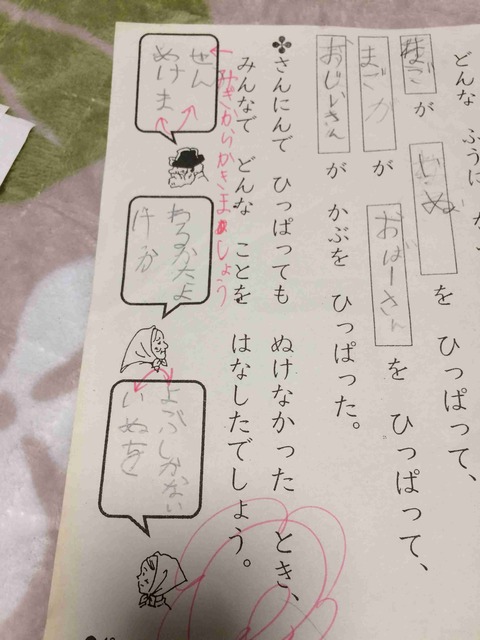 どんな ふうに
まごが いぬを ひっぱって、
まごが が おばーさんを ひっぱって、
おじいさん が かぶを ひっぱった。
さんにんで ひっぱっても ぬけなかった とき、
みんなで どんな ことを はなしたでしょう。
みぎからかきましょう
せん
ぬけま
よぶしかない
いぬを